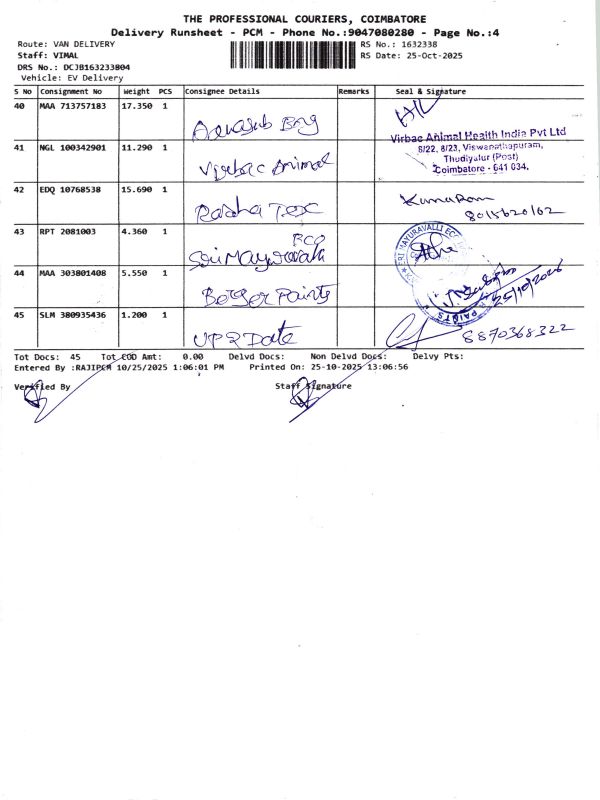 THE PROFESSIONAL COURIERS, COIMBATORE
Delivery Runsheet - PCM - Phone No.:9047080280 - Page No.:4
Route: VAN DELIVERY
RS No.: 1632338
Staff: VIMAL
RS Date: 25-Oct-2025
DRS No.: DCJB163233804
Vehicle: EV Delivery
S No Consignment No Weight PCS Consignee Details Remarks Seal & Signature
40 MAA 713757183 17.350 1
Virbac Animal Health India Pvt Ltd
8/22, 8/23, Viswanathapuram,
Thudiyalur (Post)
Coimbatore - 641 034.
41 NGL 100342901 11.290 1 Virbac Animal
42 EDQ 10768538 15.690 1 Radha Tex
8015620162
43 RPT 2081003 4.360 1
44 MAA 303801408 5.550 1 Berger Paints
45 SLM 380935436 1.200 1 UP2Date 8870368322
Tot Docs: 45 Tot COD Amt: 0.00 Delvd Docs: Non Delvd Docs: Delvy Pts:
Entered By :RAJIPCM 10/25/2025 1:06:01 PM Printed On: 25-10-2025 13:06:56
Verified By Staff Signature